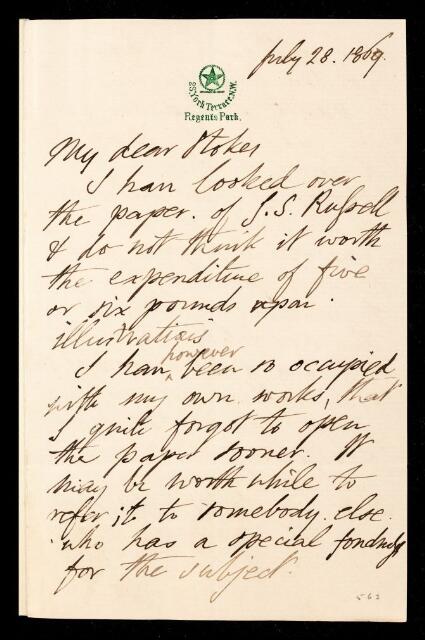 July 28. 1869.
25, York Terrace, N.W.
Regents Park.
My dear Stokes
I have looked over
the paper. of J.S. Russell
& do not think it worth
the expenditure of five
or six pounds upon
illustrations
I have however been so occupied
with my own works, that
I quite forgot to open
the paper sooner. It
may be worth while to
refer it to somebody else.
who has a special fondness
for the subject.
563